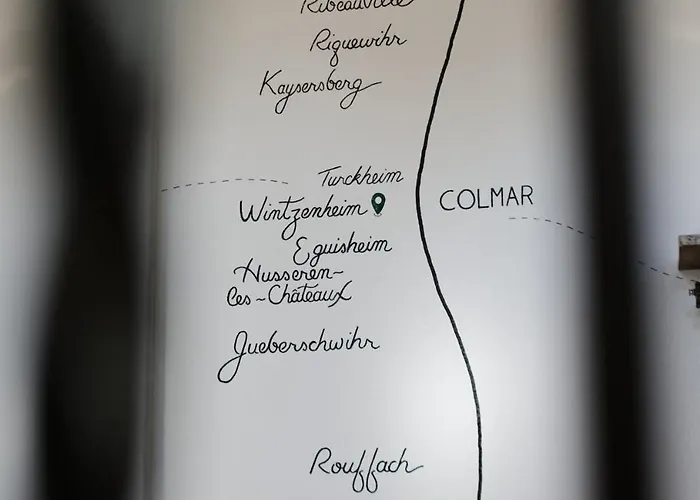 Ribeauvillé
Riquewihr
Kaysersberg
Turckheim
Wintzenheim
COLMAR
Eguisheim
Husseren~
Les~Châteaux
Gueberschwihr
Rouffach